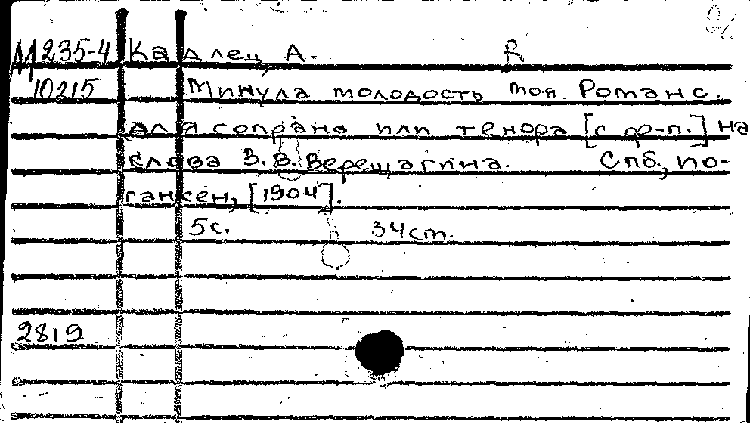 М235-4 Кадлец, А. R
10215 Минула молодость моя. Романс.
для сопрано или тенора [с ф-п.] на
слова В. В. Верещагина. Спб., Ио-
гансен, [1904].
5с. 34см.
2819